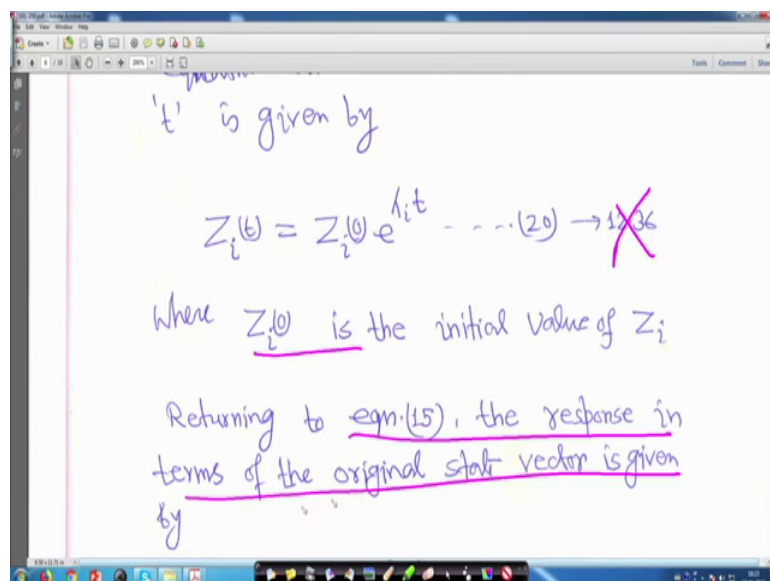 File Edit View Window Help
Create
Tools Comment Share
't' is given by
Z_i(t) = Z_i(0) e^{λ_i t} ----- (20) → 1236
Where Z_i(0) is the initial value of Z_i
Returning to eqn.(15), the response in
terms of the original stat vector is given
by